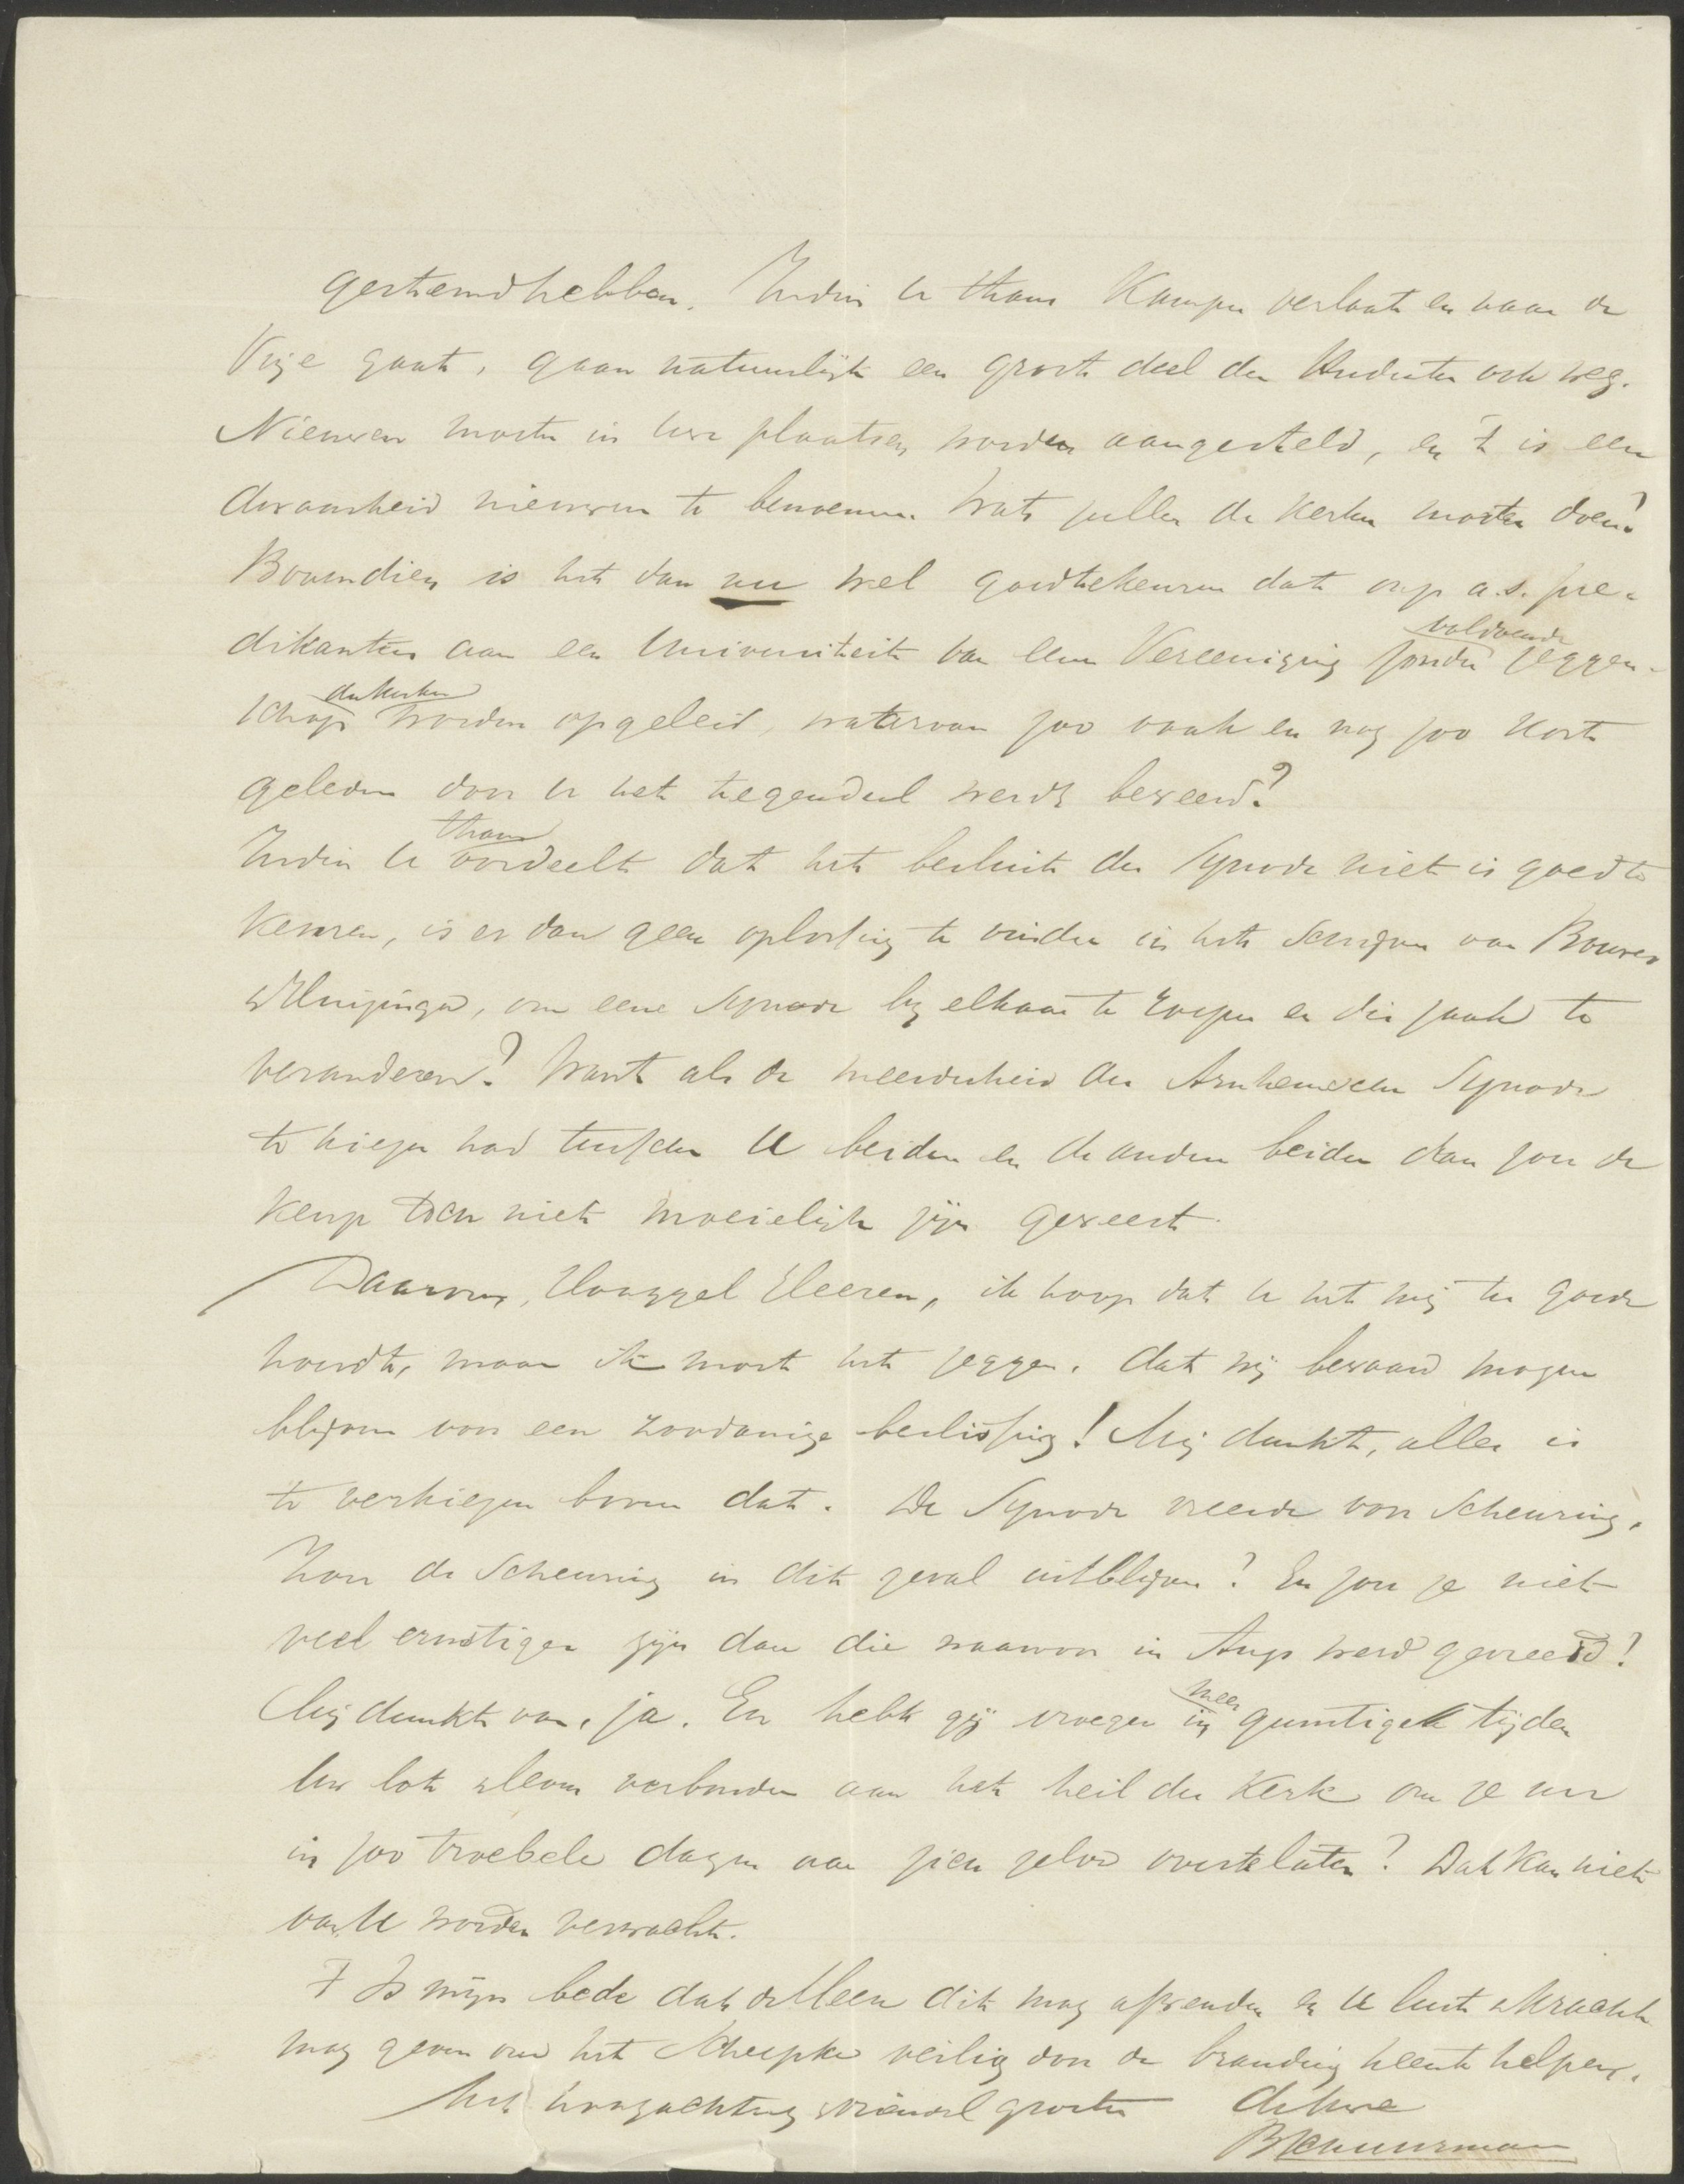 gestemd hebben. Indien U thans Kampen verlaat en naar de
Vrije gaat, gaan natuurlijk een groot deel der studenten ook weg.
Nieuwen moeten in uwe plaatsen worden aangesteld, en 't is een
dwaasheid nieuwen te benoemen. Wat zullen de kerken moeten doen?
Bovendien is het dan nu wel goedtekeuren dat onze a.s. pre-
dikanten aan een Universiteit van eene Vereeniging zonder voldoende zeggen-
schap der kerken worden opgeleid, waarvan zoo vaak en nog zoo kort
geleden door U het tegendeel werd beweerd?
Indien U thans oordeelt dat het besluit der Synode niet is goed te
keuren, is er dan geen oplossing te vinden in het schrijven van Bouwen
& Huizinga, om eene Synode bij elkaar te roepen en die zaak te
veranderen? Want als de meerderheid der Arnhemsche Synode
te kiezen had tusschen U beiden en de andere beiden dan zou de
keuze toch niet moeielijk zijn geweest.
Daarom, Hooggel Heeren, ik hoop dat U het mij ten goede
houdt, maar ik moet het zeggen, dat wij bewaard mogen
blijven voor een zoodanige beslissing! Mij dunkt, alles is
te verkiezen boven dat. De Synode vreesde voor scheuring.
Zou de scheuring in dit geval uitblijven? En zou ze niet
veel ernstiger zijn dan die waarvoor in Aug. werd gevreesd!
Mij dunkt van, ja. En hebt gij vroeger in meer gunstige tijden
Uw lot & leven verbonden aan het heil der Kerk om ze nu
in zoo troebele dagen aan zich zelve overtelaten? Dat kan niet
van U worden verwacht.
't Is mijn bede dat de Heere dit mag afwenden en U lust & kracht
mag geven om het scheepke veilig door de branding heen te helpen.
Met hoogachting & vriendel groeten dehuwe
B Schuurman